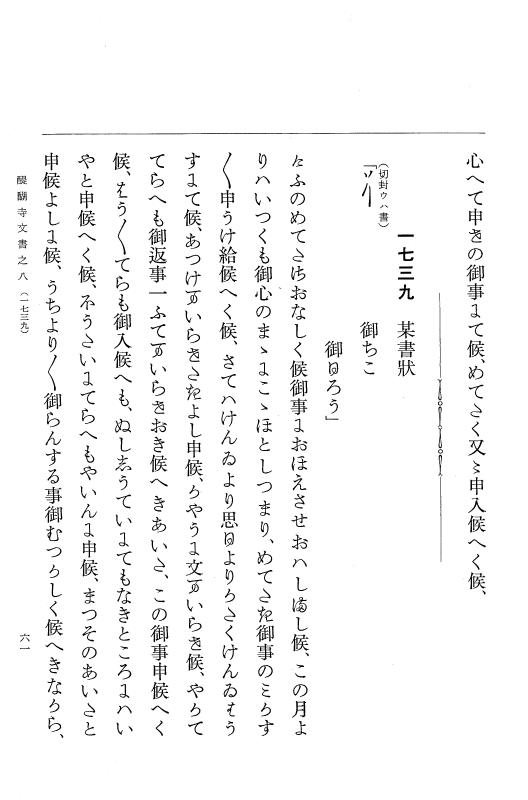 心へて申きの御事まて候、めてさく又〻申入候へく候、
一七三九　某書狀
(切封ゥハ書)
「〻り
御ちこ
御ひろう」
さふのめてさはおなしく候御事まおほえさせおハしまし候、この月よ
りハいつくも御心のまゝまこゝほとしつまり、めてさた御事のミらす
〱申うけ給候へく候、さてハけんゐより思ひよりらさくけんゐはう
すまて候、あつけ可いらきさたよし申候、らやうま文可いらき候、やらて
てらへも御返事一ふて可いらきおき候へきあいさ、この御事申候へく
候、はう〱てらも御入候へも、ぬし志うていまてもなきところまハい
やと申候へく候、不うさいまてらへもやいんま申候、まつそのあいさと
申候よしま候、うちより〱御らんする事御むつらしく候へきならら、
醍醐寺文書之八（一七三九）
六一